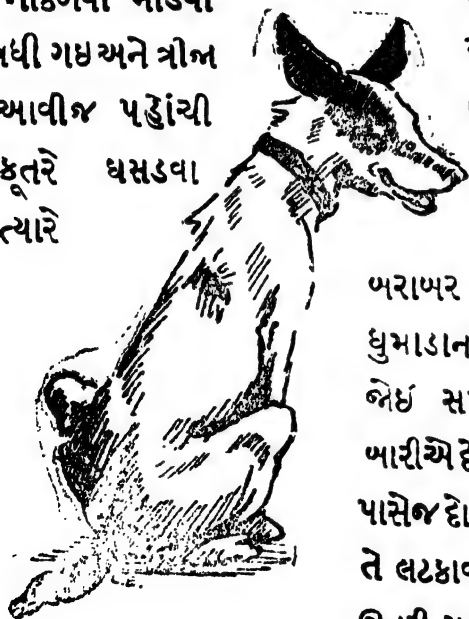 નીકળવા માંડવા
વધી ગઇ અને ત્રીજા
આવીજ પહોંચી
કૂતરે ઘસડવા
ત્યારે
બરાબર
ધુમાડાન
જોઇ સ
બારીએ દે
પાસેજ દો
તે લટકાવ